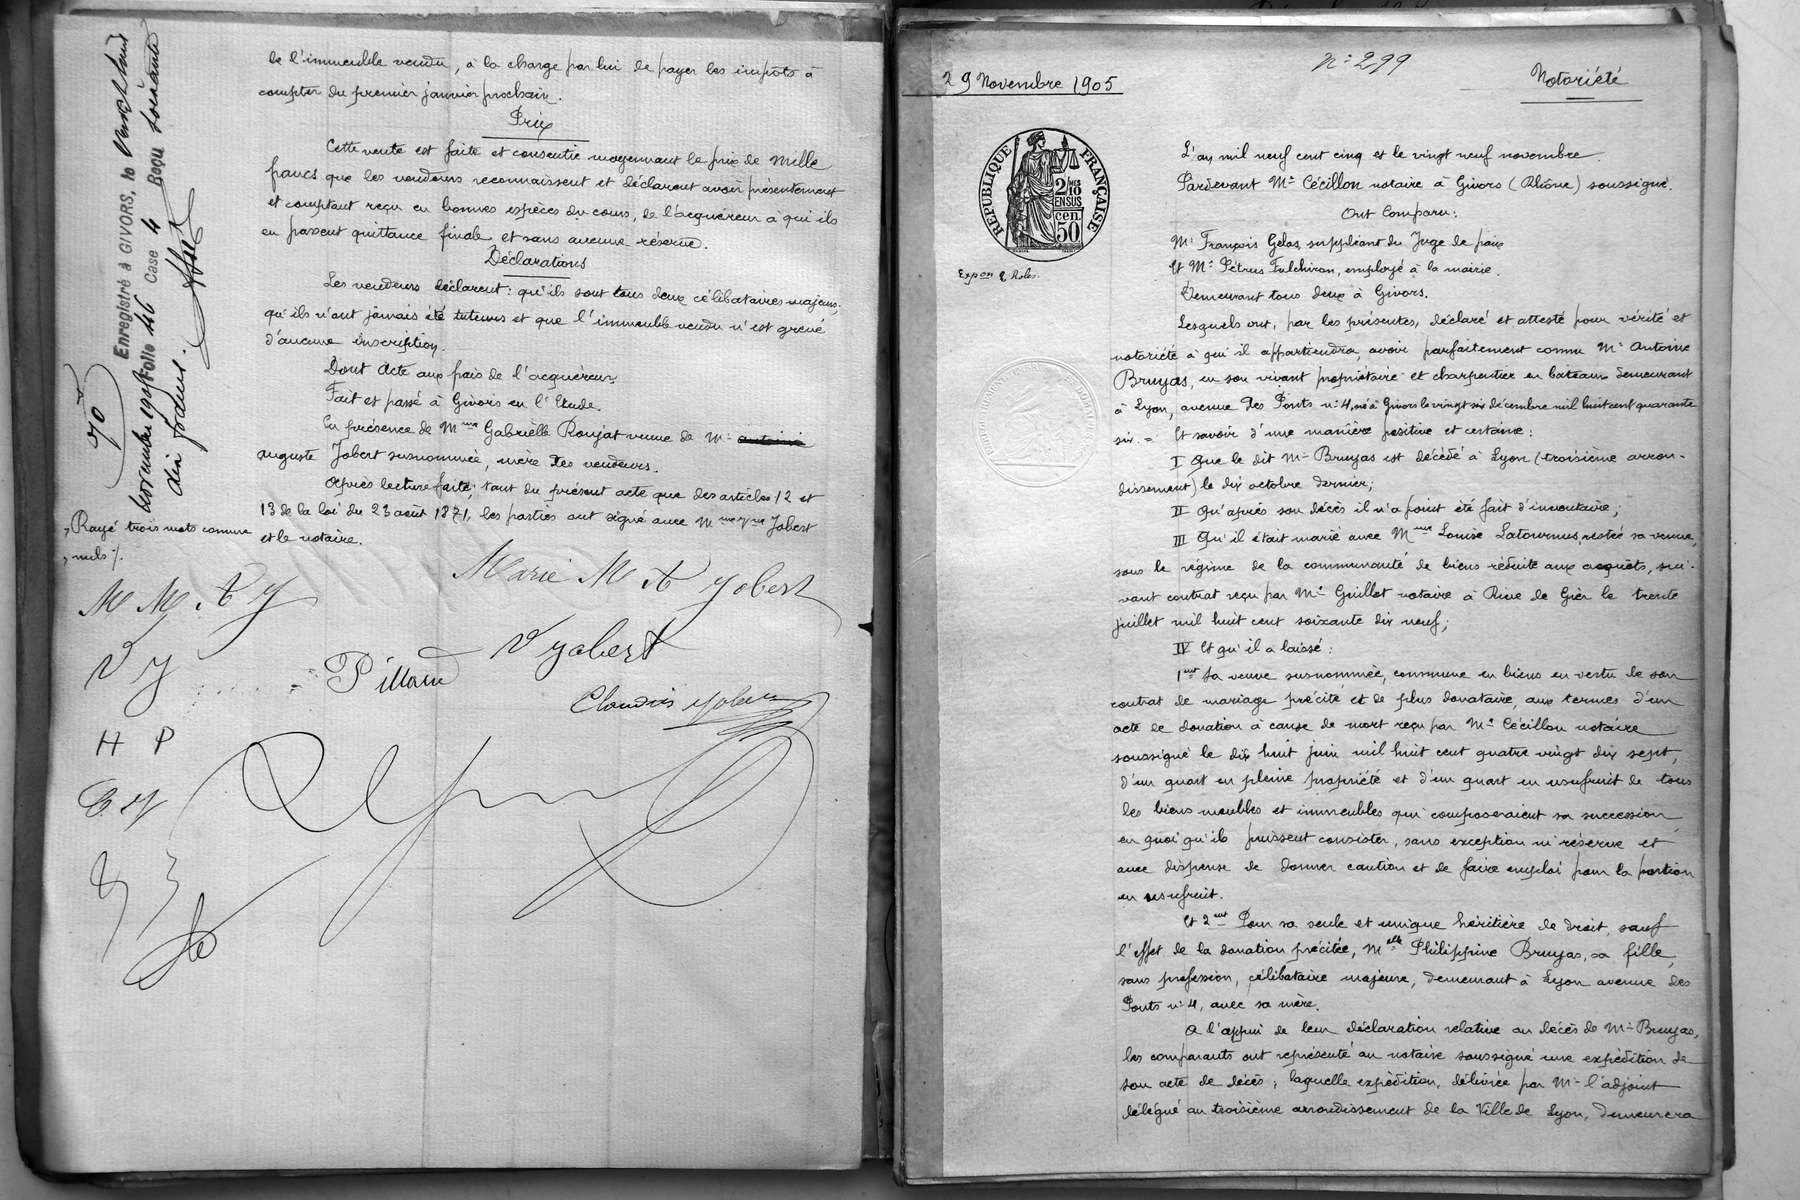 de l'immeuble vendu, à la charge par lui de payer les impôts à
compter du premier janvier prochain.
Prix
Cette vente est faite et consentie moyennant le prix de Mille
francs que les vendeurs reconnaissent et déclarent avoir présentement
et comptant reçu en bonnes espèces du cours, de l'acquéreur à qui ils
en passent quittance finale et sans aucune réserve.
Déclarations
Les vendeurs déclarent: qu'ils sont tous deux célibataires majeurs,
qu'ils n'ont jamais été tuteurs et que l'immeuble vendu n'est grevé
d'aucune inscription.
Dont Acte aux frais de l'acquéreur.
Fait et passé à Givors en l'Etude.
En présence de Mme Gabrielle Roujat veuve de Mr antoine
auguste Jobert susnommée, mère des vendeurs.
Après lecture faite, tant du présent acte que des articles 12 et
13 de la loi du 23 août 1871, les parties ont signé avec Mme Vve Jobert
et le notaire.
Enregistré à GIVORS, le vingt huit
Novembre 1905 Folio 46 Case 4 Reçu soixante
dix francs.
70
Rayé trois mots comme
nuls ./.
Marie M A Jobert
M M A J
V Jobert
V J
Pillard
Claudius Jobert
H P
N° 299
29 Novembre 1905
Notoriété
RÉPUBLIQUE FRANÇAISE
2/10
EN SUS
50 cen
Expon 2 Roles.
L'an mil neuf cent cinq et le vingt neuf novembre.
Pardevant Me Cécillon notaire à Givors (Rhône) soussigné.
Ont Comparu:
Mr François Gelas, suppléant du Juge de paix
Et Mr Pétrus Fulchiron, employé à la mairie.
Demeurant tous deux à Givors.
Lesquels ont, par les présentes, déclaré et attesté pour vérité et
notoriété à qui il appartiendra, avoir parfaitement connu Mr Antoine
Bruyas, en son vivant propriétaire et charpentier en bateaux demeurant
à Lyon, avenue des Ponts n° 4, né à Givors le vingt six décembre mil huit cent quarante
six. = Et savoir d'une manière positive et certaine:
I Que le dit Mr Bruyas est décédé à Lyon (troisième arron-
dissement) le dix octobre dernier;
II Qu'après son décès il n'a point été fait d'inventaire;
III Qu'il était marié avec Mme Louise Latournus, restée sa veuve,
sous le régime de la communauté de biens réduite aux acquêts, sui-
vant contrat reçu par Me Guillot notaire à Rive de Gier le trente
juillet mil huit cent soixante dix neuf;
IV Et qu'il a laissé:
1ent Sa veuve susnommée, commune en biens en vertu de son
contrat de mariage précité et de plus donataire, aux termes d'un
acte de donation à cause de mort reçu par Me Cécillon notaire
soussigné le dix huit juin mil huit cent quatre vingt dix sept,
d'un quart en pleine propriété et d'un quart en usufruit de tous
les biens meubles et immeubles qui composeraient sa succession
en quoi qu'ils puissent consister, sans exception ni réserve et
avec dispense de donner caution et de faire emploi pour la portion
en usufruit.
Et 2ent Pour sa seule et unique héritière de droit, sauf
l'effet de la donation précitée, Melle Philippine Bruyas, sa fille,
sans profession, célibataire majeure, demeurant à Lyon avenue des
Ponts n° 4, avec sa mère.
A l'appui de leur déclaration relative au décès de Mr Bruyas,
les comparants ont représenté au notaire soussigné une expédition de
son acte de décès; laquelle expédition, délivrée par Mr l'adjoint
délégué au troisième arrondissement de la Ville de Lyon, demeurera